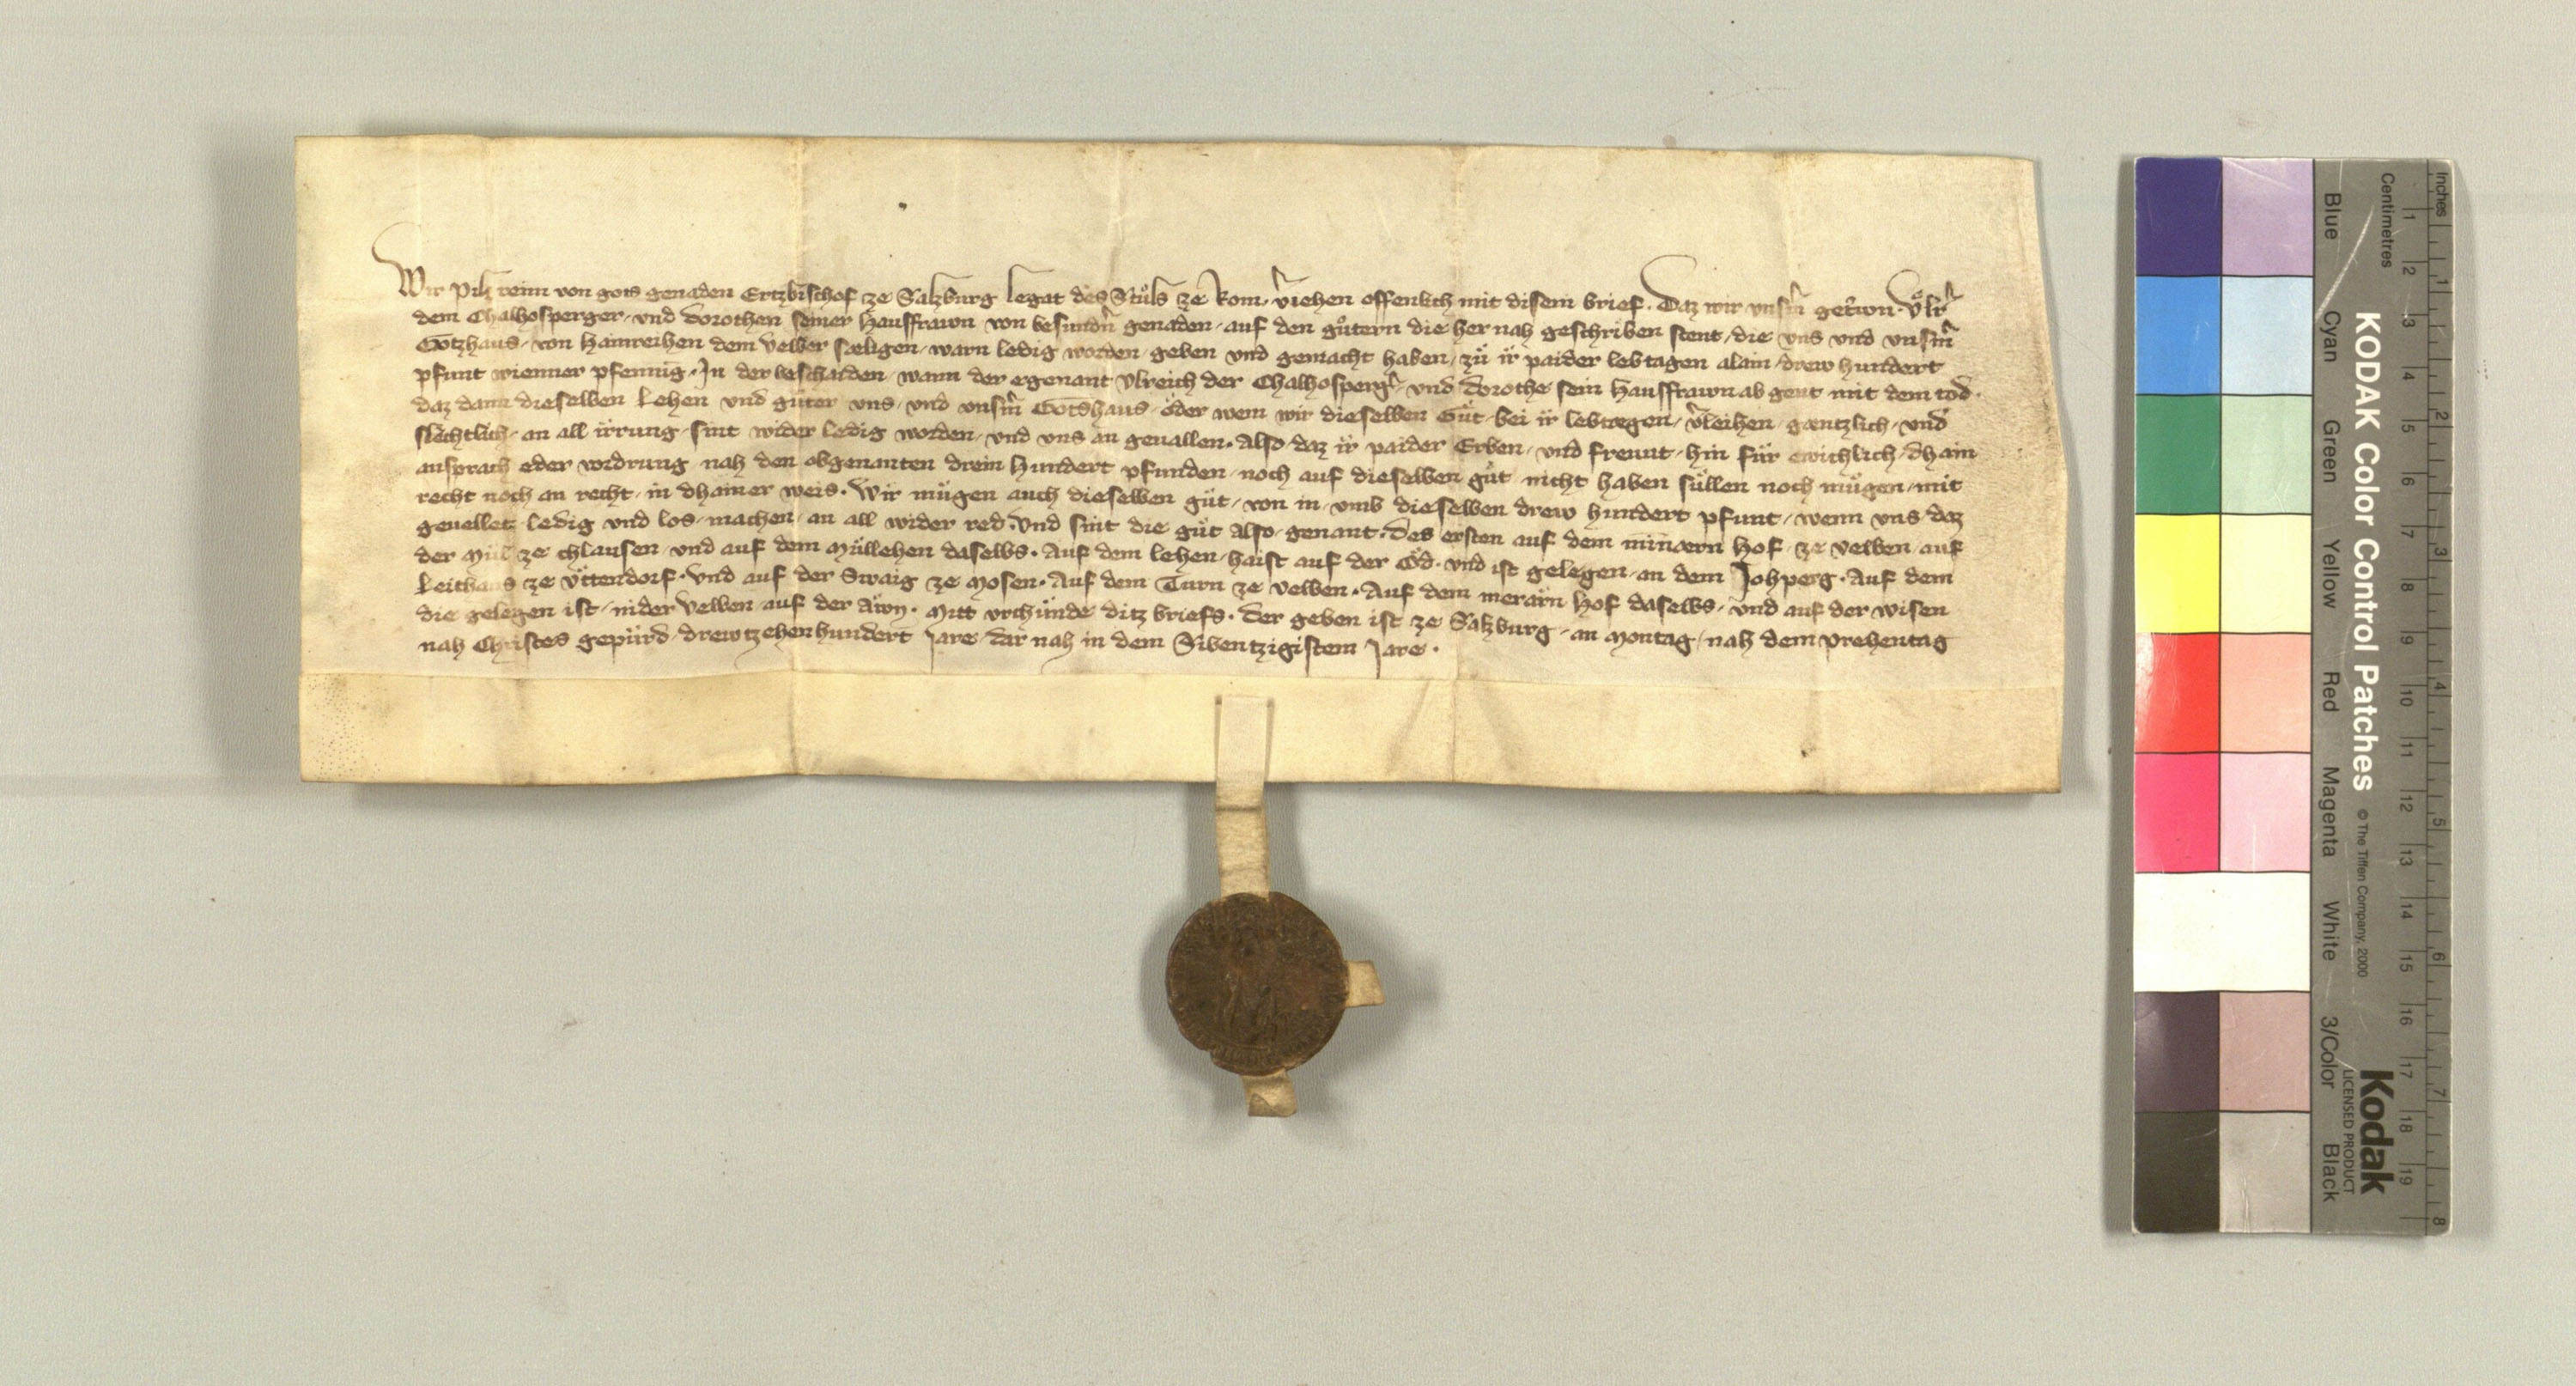 Wir Pilgreim von gots genaden Ertzbischof ze Salzburg legat des Stůls ze Rom. v̓iehen offenlich mit disem brief. Daz wir vnsm̓ getrewn Vͦlr̓
dem Chalhosperger, vnd Dorothen seiner Hausfrawn von besundn̓ genaden, auf den gůtern die her nah geschriben stent, die vns vnd vnsm̓
Gotzhaus, von Hainreihen dem Velber sæligen, warn ledig worden, geben vnd gemacht haben, zů ir paider lebtagen alain, drew hundert
pfunt wienner pfennig. In der beschaiden, wann der egenant Vlreich der Chalhosperg̓, vnd Dorothe sein Hausfrawn ab gent mit dem tod.
daz dann dieselben Lehen vnd gůter vns, vnd vnsm̓ Gotshaus, oder wem wir dieselben Gůt, bei ir lebtægen, v̓leihen, gæntzlich, vnd
slæchtlich, an all irrung, sint wider ledig worden, vnd vns an geuallen. Also daz ir paider Erben, vnd freunt, hin für ewichlich, dhain
ansprach oder vordrung, nah den obgenanten drein Hundert pfunden, noch auf dieselben gůt, nicht haben süllen noch mügen, mit
recht noch an recht, in dhainer weis. Wir mügen auch dieselben gůt, von in, vmb dieselben drew hundert pfunt, wenn vns daz
geuellet, ledig vnd los, machen, an all wider red. Vnd sint die gůt also, genant. Des ersten auf dem minnern Hof, ze Velben, auf
der Mül ze Chlausen, vnd auf dem Müllehen daselbs. Auf dem lehen, haist auf der Öd. vnd ist gelegen, an dem Johperg. Auf dem
Leithaus ze Vttendorf. Vnd auf der Swaig ze Mosen. Auf dem Turn ze Velben. Auf dem merarn Hof daselbs, vnd auf der wisen
die gelegen ist, nider Velben, auf der Awn. Mit vrchünde ditz briefs. Der geben ist ze Salzburg, an Montag, nah dem Prehentag
nah Christes gepürd, drewtzehenhundert Jare, dar nah in dem Sibentzigistem Jare.
KODAK Color Control Patches © The Tiffen Company, 2000 Kodak
LICENSED PRODUCT
Blue Cyan Green Yellow Red Magenta White 3/Color Black
Centimetres 1 2 3 4 5 6 7 8 9 10 11 12 13 14 15 16 17 18 19
Inches 1 2 3 4 5 6 7 8